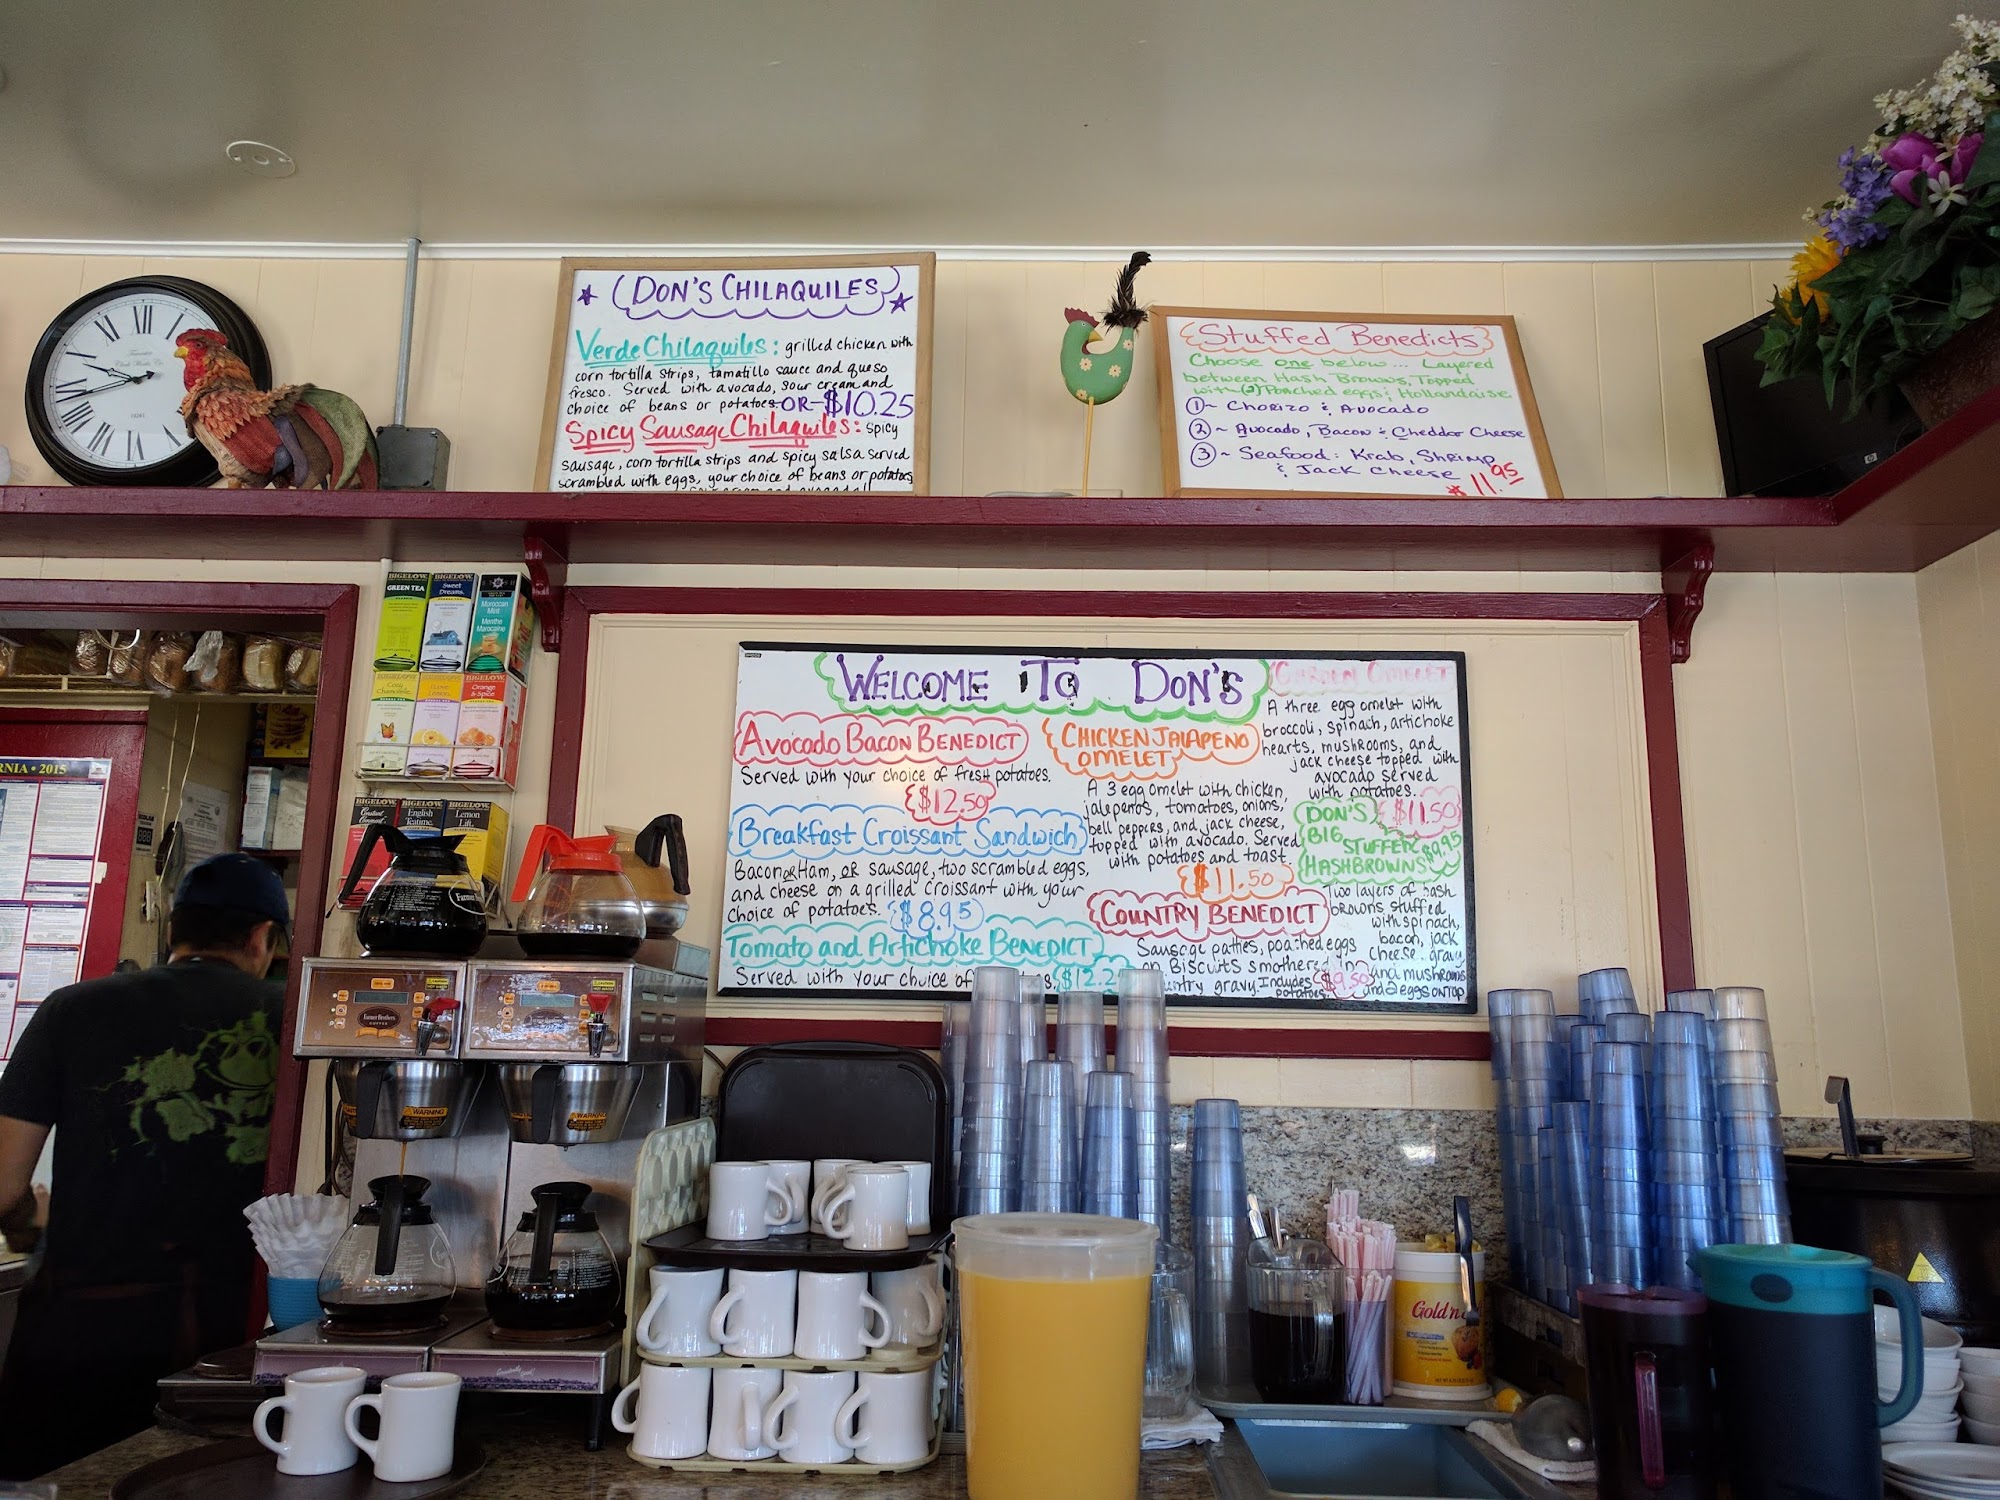 DON'S CHILAQUILES
Verde Chilaquiles: grilled chicken with
corn tortilla strips, tamatillo sauce and queso
fresco. Served with avocado, sour cream and
choice of beans or potatoes. -OR- $10.25
Spicy Sausage Chilaquiles: spicy
sausage, corn tortilla strips and spicy salsa served
scrambled with eggs, your choice of beans or potatoes,
Stuffed Benedicts
Choose one below... Layered
between Hash Browns, Topped
with (2) Poached eggs & Hollandaise
1 ~ Chorizo & Avocado
2 ~ Avocado, Bacon & Cheddar Cheese
3 ~ Seafood: Krab, Shrimp
& Jack Cheese
$11.95
WELCOME TO DON'S
Avocado Bacon Benedict
Served with your choice of fresh potatoes.
$12.50
Breakfast Croissant Sandwich
Bacon or Ham, or sausage, two scrambled eggs,
and cheese on a grilled croissant with your
choice of potatoes. $8.95
Tomato and Artichoke Benedict
Served with your choice of
$12.2
CHICKEN JALAPENO
OMELET
A 3 egg omelet with chicken,
jalepenos, tomatoes, onions,
bell peppers, and jack cheese,
topped with avocado. Served
with potatoes and toast.
$11.50
Country Benedict
Sausage patties, poached eggs
on Biscuits smothered in
country gravy. Includes
potatoes. $9.50
GARDEN OMELET
A three egg omelet with
broccoli, spinach, artichoke
hearts, mushrooms, and
jack cheese topped with
avocado served
with potatoes.
$11.50
DON'S
BIG
STUFFED
HASHBROWNS $9.95
Two layers of hash
browns stuffed
with spinach,
bacon, jack
cheese, gravy
and mushrooms
and 2 eggs on top
BIGELOW
GREEN TEA
BIGELOW
Sweet
Dreams
Moroccan
Mint
Menthe
Marocaine
BIGELOW
Cozy
Chamomile
I Love
Lemon
Orange
& Spice
BIGELOW
Constant
Comment
BIGELOW
English
Teatime
BIGELOW
Lemon
Lift
RNIA • 2015
Farmer Brothers
COFFEE
WARNING
WARNING
Gold'n